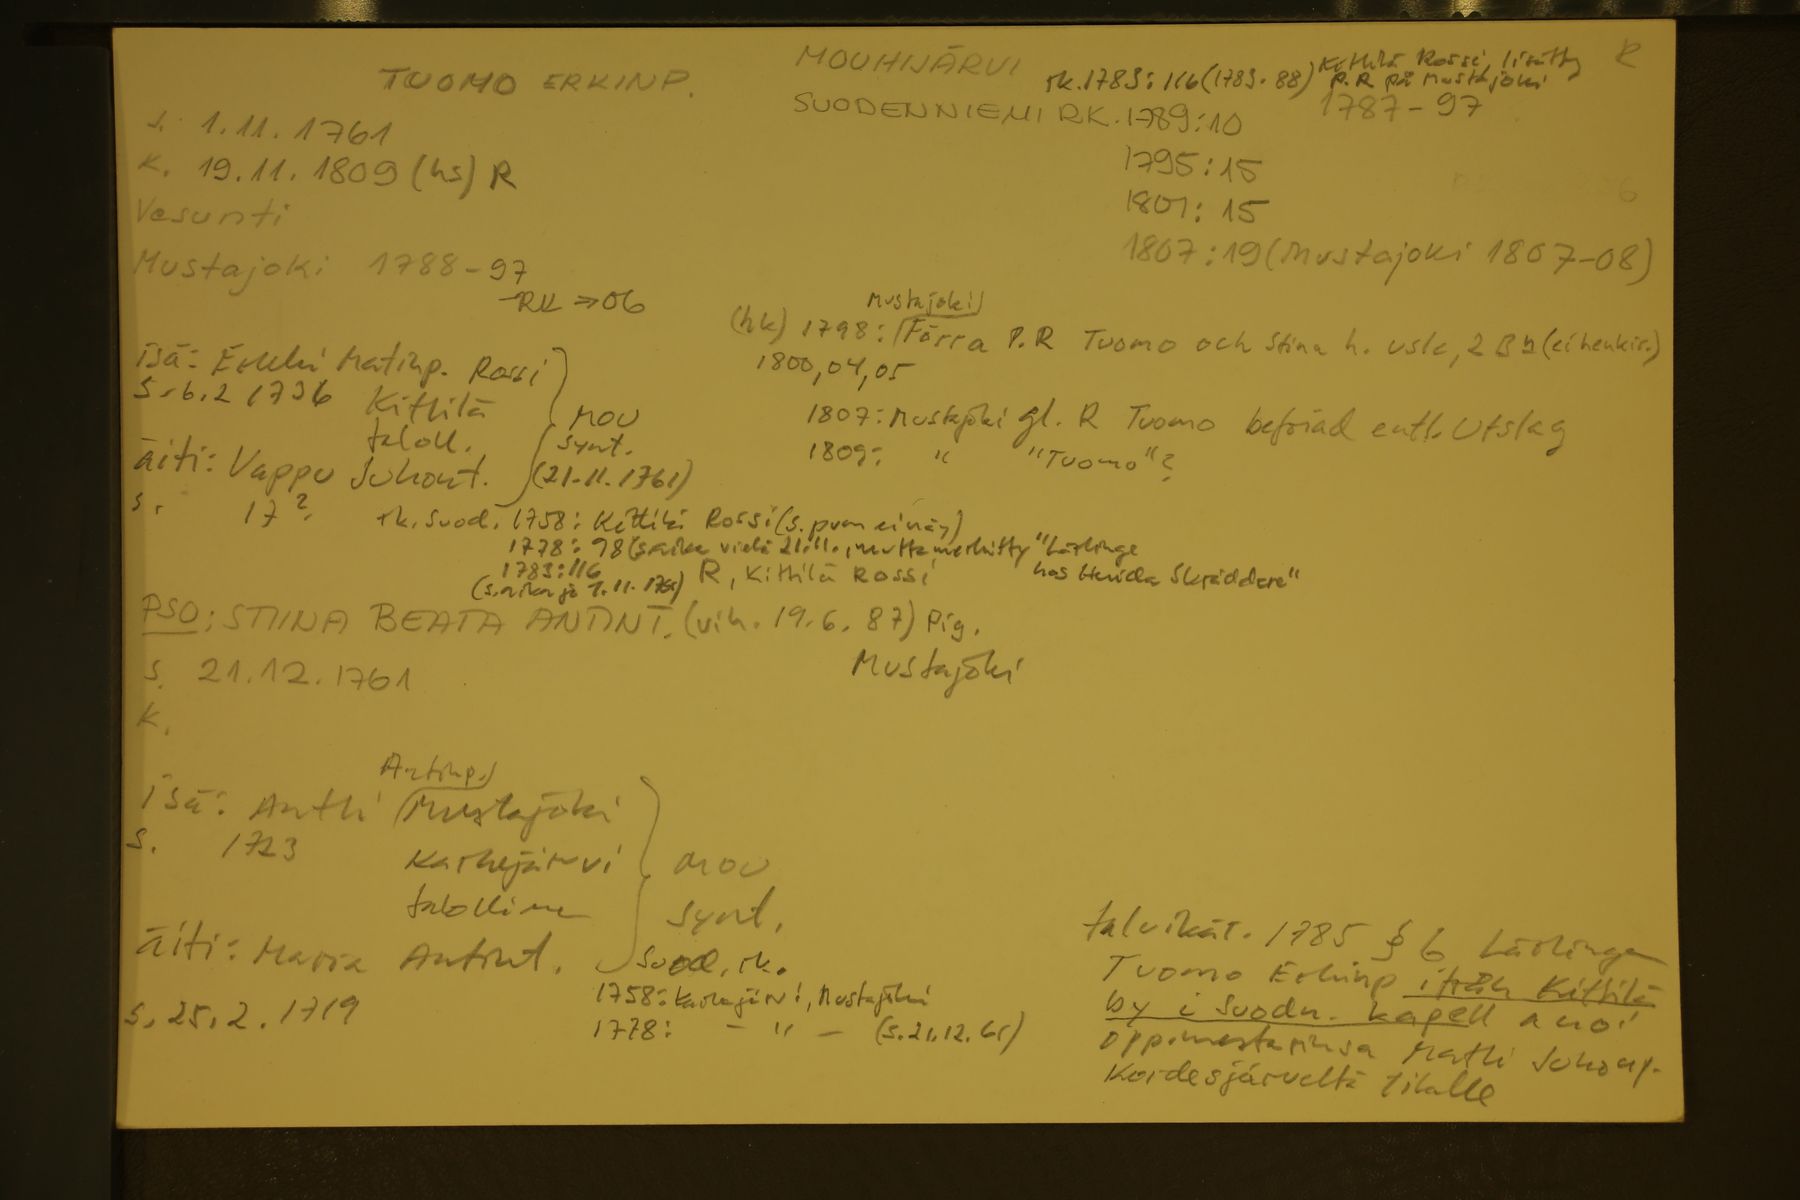 TUOMO ERKINP.
s. 1.11.1761
k. 19.11.1809 (hs) R
Vesunti
Mustajoki 1788-97
RK ⇒ 06
MOUHIJÄRVI rk. 1783: 116 (1783-88) Kittilä Rossi, lisätty
P.R på Mustajoki
R
SUODENNIEMI RK. 1789:10 1787-97
1795:15
1801: 15
1807:19 (Mustajoki 1807-08)
Mustajoki
(hk) 1798: Förra P.R Tuomo och Stina h. usk, 2 B (ei henkir.)
1800,04,05
1807: Mustajoki gl. R Tuomo befriad enl. Utslag
1809: " "Tuomo"?
isä: Erkki Matinp. Rossi
s. 6.2 1736 Kittilä
taloll.
äiti: Vappu Juhont.
s. 17?
MOU
synt.
(21.11.1761)
rk. Suod. 1758: Kittilä Rossi (s. pvm ei näy)
1778: 98 (s.aika vielä 21.11., mutta merkitty "Lärlinge
hos Skräddare"
1783:116 R, Kittilä Rossi
(s.aika jo 1.11.1761)
PSO: STIINA BEATA ANTINT. (vih. 19.6.87) Pig.
Mustajoki
s. 21.12.1761
k.
Antinp.
isä: Antti Mustajoki
s. 1723
Karhejärvi
talollinen
äiti: Maria Antint.
s. 25.2.1719
MOU
synt.
Suod. rk.
1758: Karhejärvi, Mustajoki
1778: - " - (s. 21.12.61)
talvikär. 1785 § 6 Lärlingen
Tuomo Erkinp ifrån Kittilä
by i Suodn. kapell anoi
oppimestarinsa Matti Juhonp.
Kourdesjärveltä tilalle